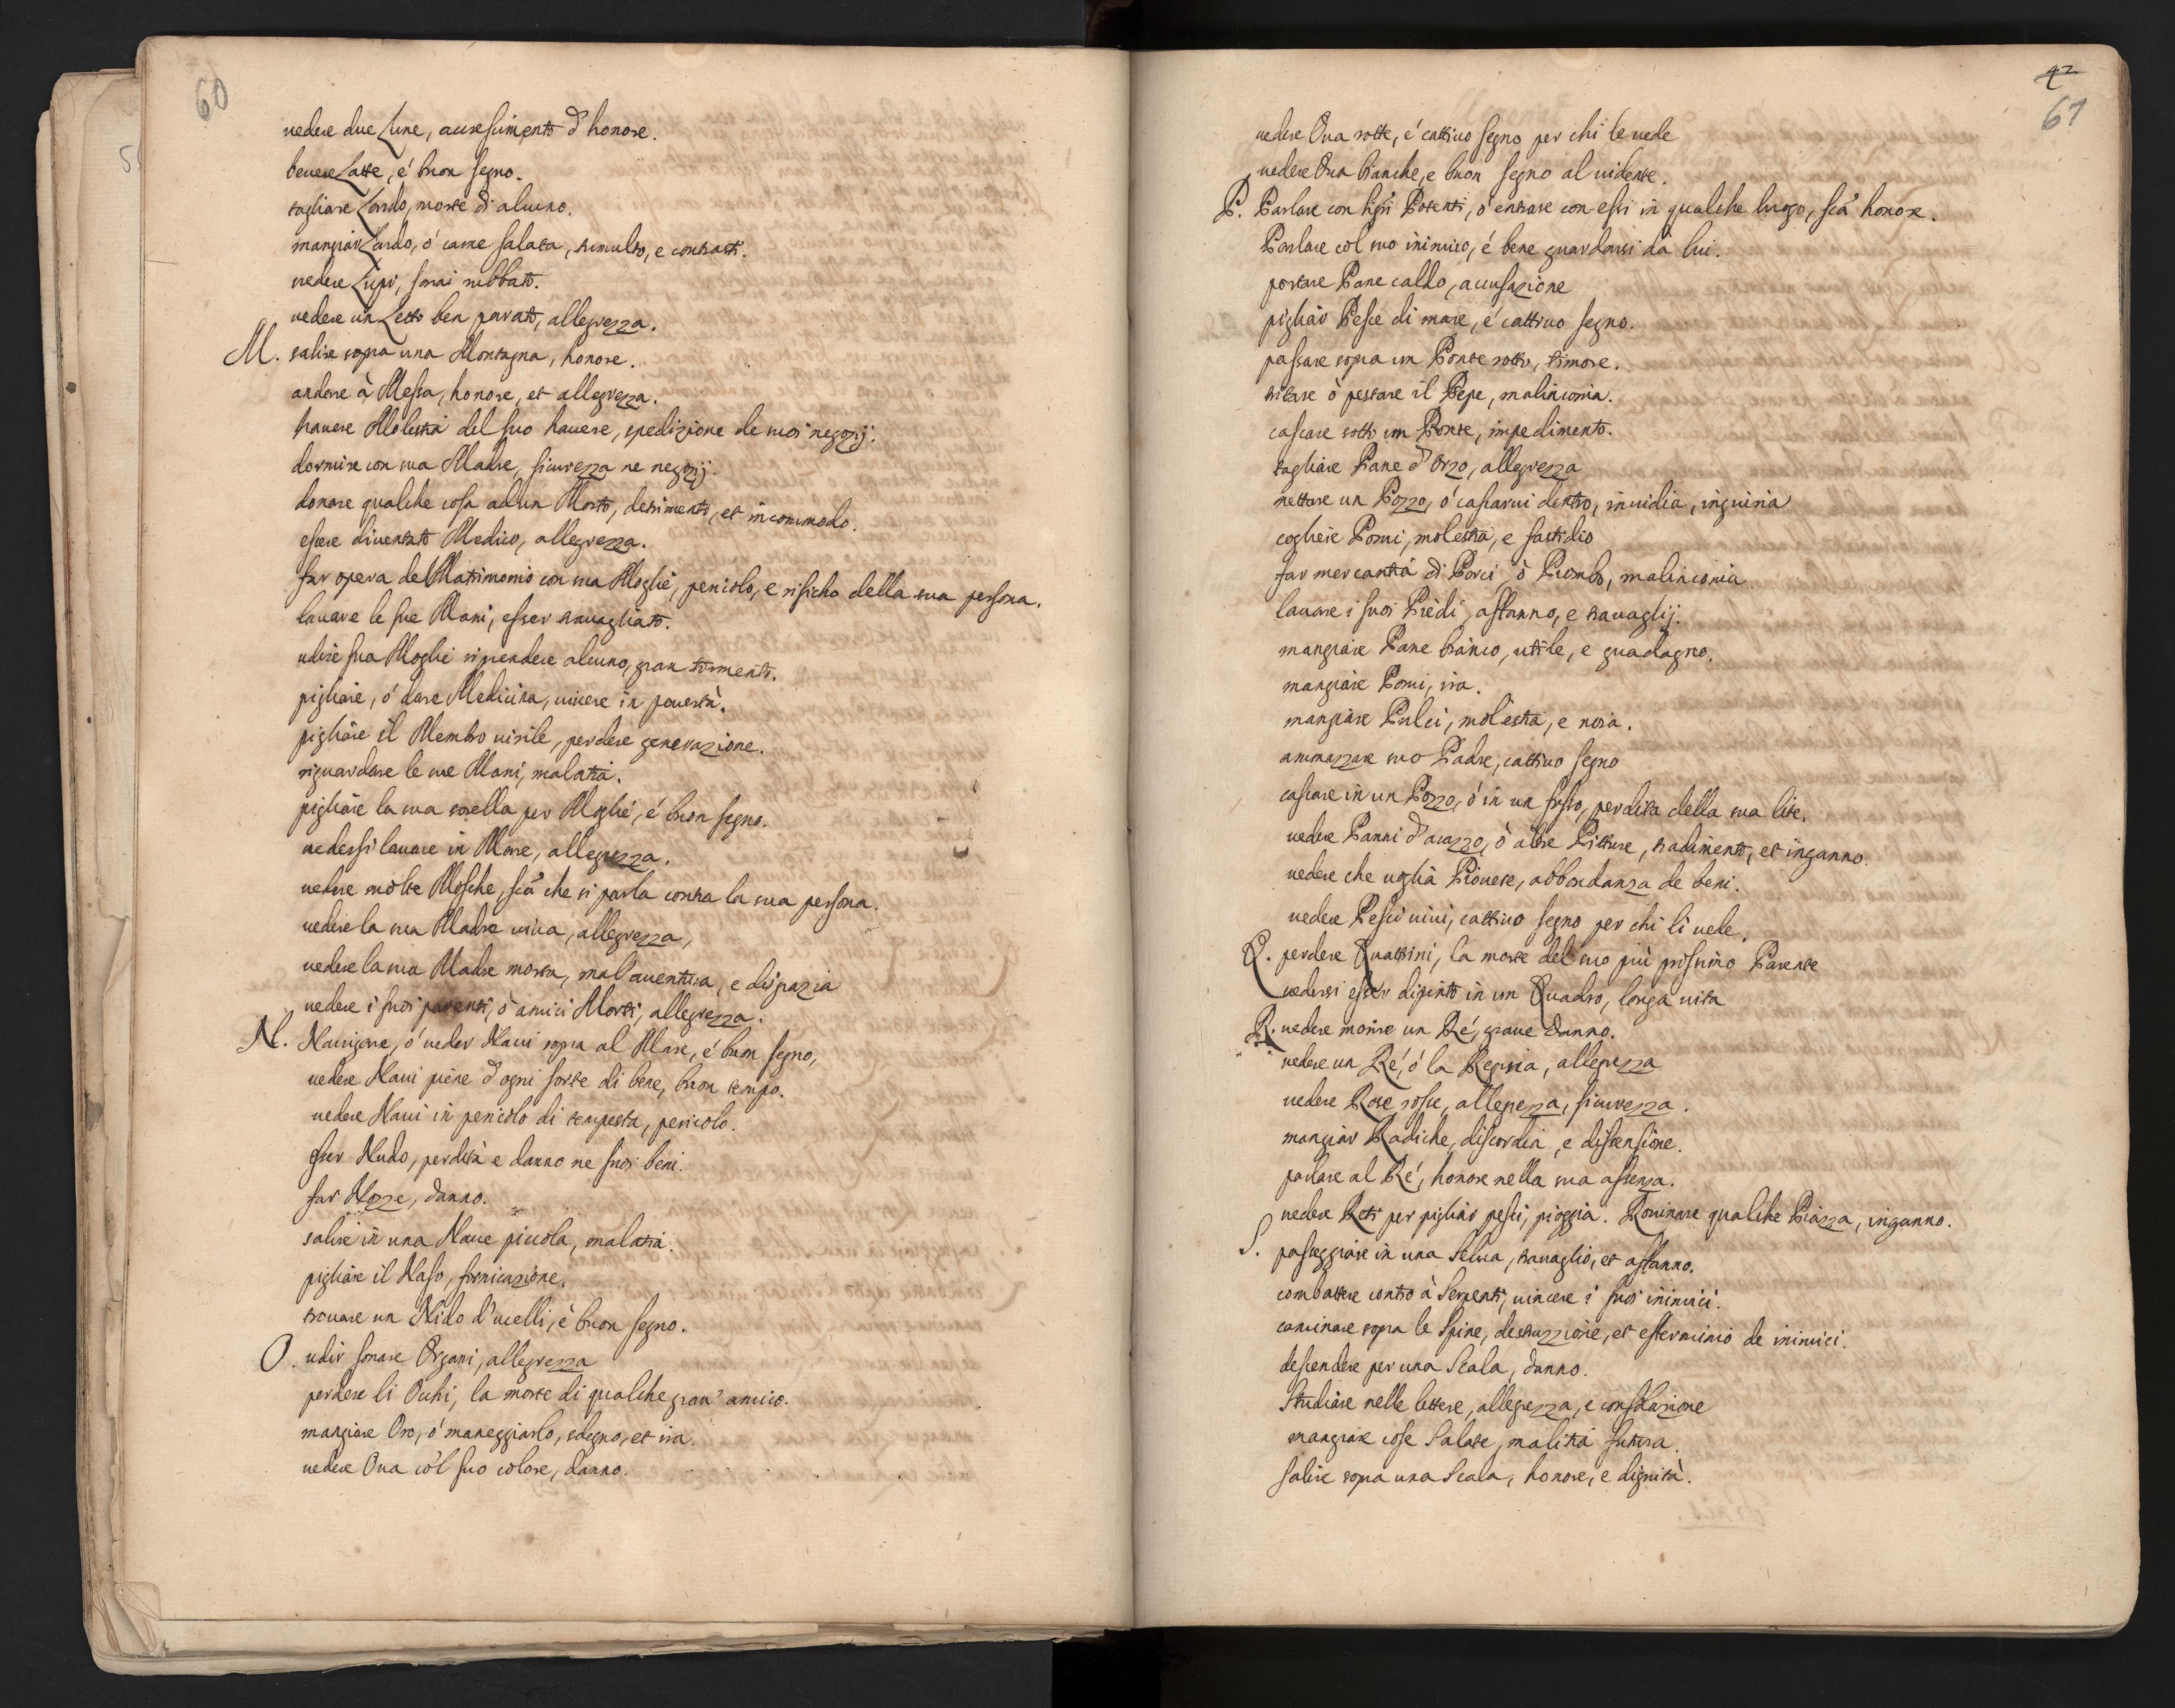 60
vedere due Lune, accrescimento d'honore.
bevere Latte, é buon segno.
tagliare Lardo, morte di alcuno.
mangiàr Lardo, ó carne salata, tumulto, e contrasti.
vedere Lupi, sarai rubbato.
vedere un Letto ben parato, allegrezza.
M. salire sopra una Montagna, honore.
andare à Messa, honore, et allegrezza.
havere Molestia del suo havere, spedizione de suoi negozij.
dormire con sua Madre, sicurezza ne negozij.
donare qualche cosa ad un Morto, detrimento, et incommodo.
essere diventato Medico, allegrezza.
far opera del Matrimonio con sua Moglie, pericolo, e risicho della sua persona.
lavare le sue Mani, esser travagliato.
udire sua Moglie riprendere alcuno, gran tormento.
pigliare, ó dare Medicina, vivere in povertà.
pigliare il Membro virile, perdere generazione.
riguardare le sue Mani, malatia.
pigliare la sua sorella per Moglie, é buon segno.
vedersi lavare in Mare, allegrezza.
vedere molte Mosche, sià che si parla contra la sua persona.
vedere la sua Madre viva, allegrezza,
vedere la sua Madre morta, mal'aventura, e disgrazia
vedere i suoi parenti, ò amici Morti, allegrezza.
N. Navigare, ó veder Navi sopra al Mare, é buon segno,
vedere Navi piene d'ogni sorte di bene, buon tempo.
vedere Navi in pericolo di tempesta, pericolo.
esser Nudo, perdita e danno ne suoi beni.
far Nozze, danno.
salire in una Nave piccola, malatia.
pigliare il Naso, fornicazione.
trovare un Nido d'ucelli, è buon segno.
O. udir sonare Organi, allegrezza
perdere li Occhi, la morte di qualche gran' amico.
mangiare Oro, ó maneggiarlo, sdegno, et ira.
vedere Ova co'l suo colore, danno.
42
61
vedere Ova rotte, é cattivo segno per chi le vede
vedere Ova bianche, e buon segno al vidente.
P. Parlare con Sigri Potenti, ó entrare con essi in qualche luogo, sià honore.
Parlare col suo inimico, é bene guardarsi da lui.
portare Pane caldo, accusazione
pigliàr Pesce di mare, é cattivo segno.
passare sopra un Ponte rotto, timore.
tritare ò pestare il Pepe, malinconia.
cascare sotto un Ponte, impedimento.
tagliare Pane d'Orzo, allegrezza
nettare un Pozzo, ó cascarvi dentro, invidia, ingiuria
cogliere Pomi, molestia, e fastidio
far mercantia di Porci, ò Piombo, malinconia
lavare i suoi Piedi, affanno, e travaglij.
mangiare Pane bianco, utile, e guadagno.
mangiare Pomi, ira.
mangiare Pulci, molestia, e noia.
ammazzare suo Padre, cattivo segno
cascare in un Pozzo, ó in un fosso, perdita della sua lite.
vedere Panni d'arazzo, ò altre Pitture, tradimento, et inganno.
vedere che voglia Piovere, abbondanza de beni.
vedere Pesci vivi, cattivo segno per chi li vede.
Q. perdere Quattrini, la morte del suo più prossimo Parente
vedersi esser dipinto in un Quadro, longa vita
R. vedere morire un Ré, grave danno.
vedere un Ré, ó la Regina, allegrezza
vedere Rose rosse, allegrezza, sicurezza.
mangiàr Radiche, discordia, e dissensione.
parlare al Ré, honore nella sua assenza.
vedere Reti per pigliàr pesci, pioggia. Rovinare qualche Piazza, inganno.
S. passeggiare in una Selva, travaglio, et affanno.
combattere contro à Serpenti, vincere i suoi inimici.
caminare sopra le Spine, destruzzione, et esterminio de inimici.
descendere per una Scala, danno.
Studiare nelle lettere, allegrezza, e consolazione
mangiare cose Salate, malitia futura.
salire sopra una Scala, honore, e dignità.